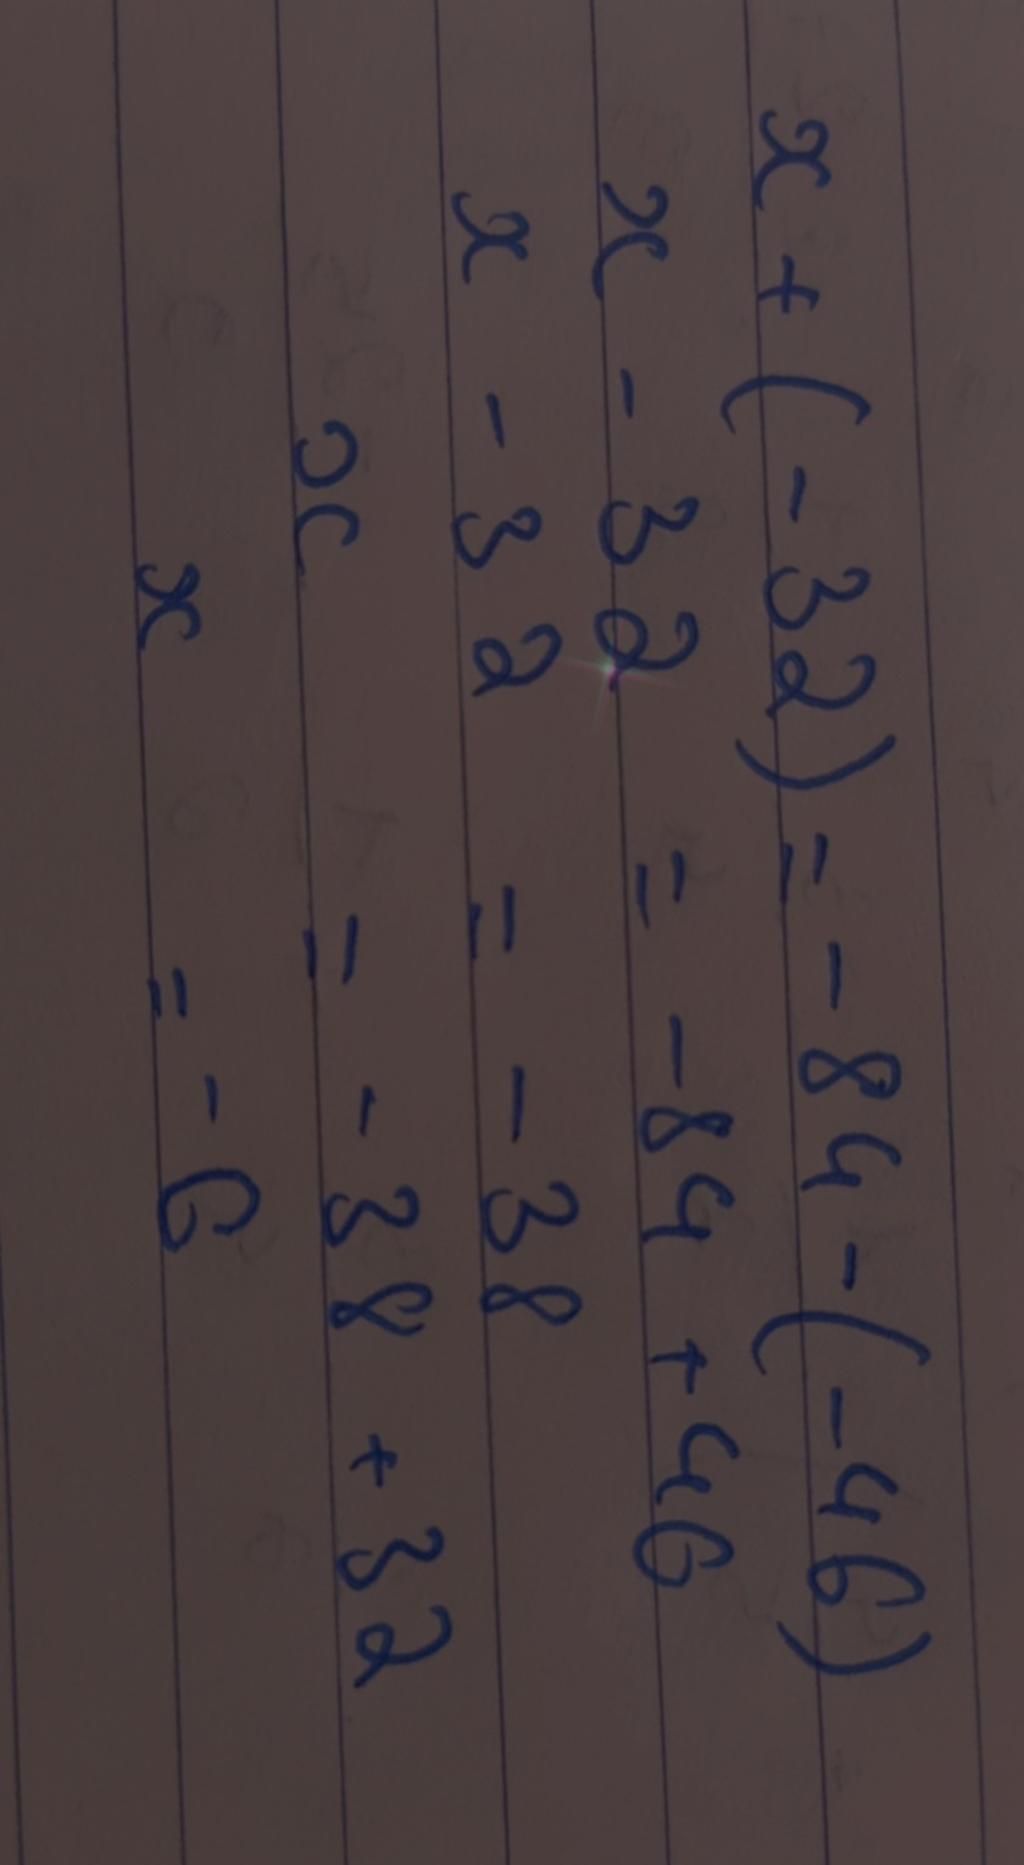 x + (-32) = -84 - (-46)
x - 32 = -84 + 46
x - 32 = -38
x = -38 + 32
x = -6